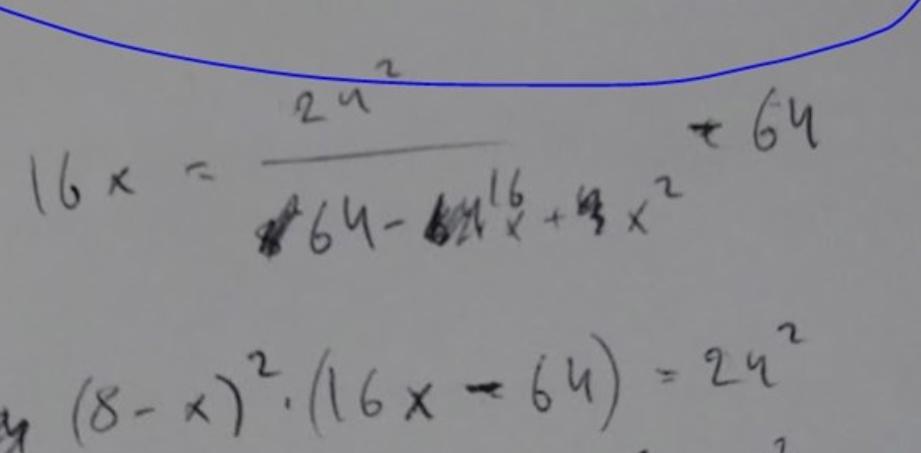 16x = 24² / (64 - 16x + x²) + 64
(8 - x)² · (16x - 64) = 24²